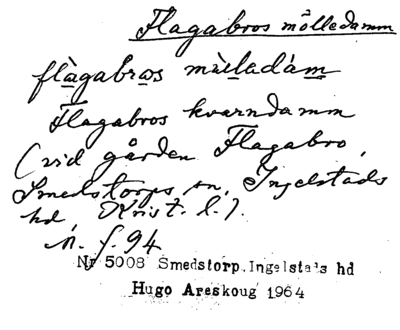 Flagabros mölledamm
flàgabras mùladám
Flagabros kvarndamm
(vid gården Flagabro,
Smedstorps sn, Ingelstads
hd, Krist. l.).
n. f. 94
Nr 5008 Smedstorp. Ingelstads hd
Hugo Areskoug 1964